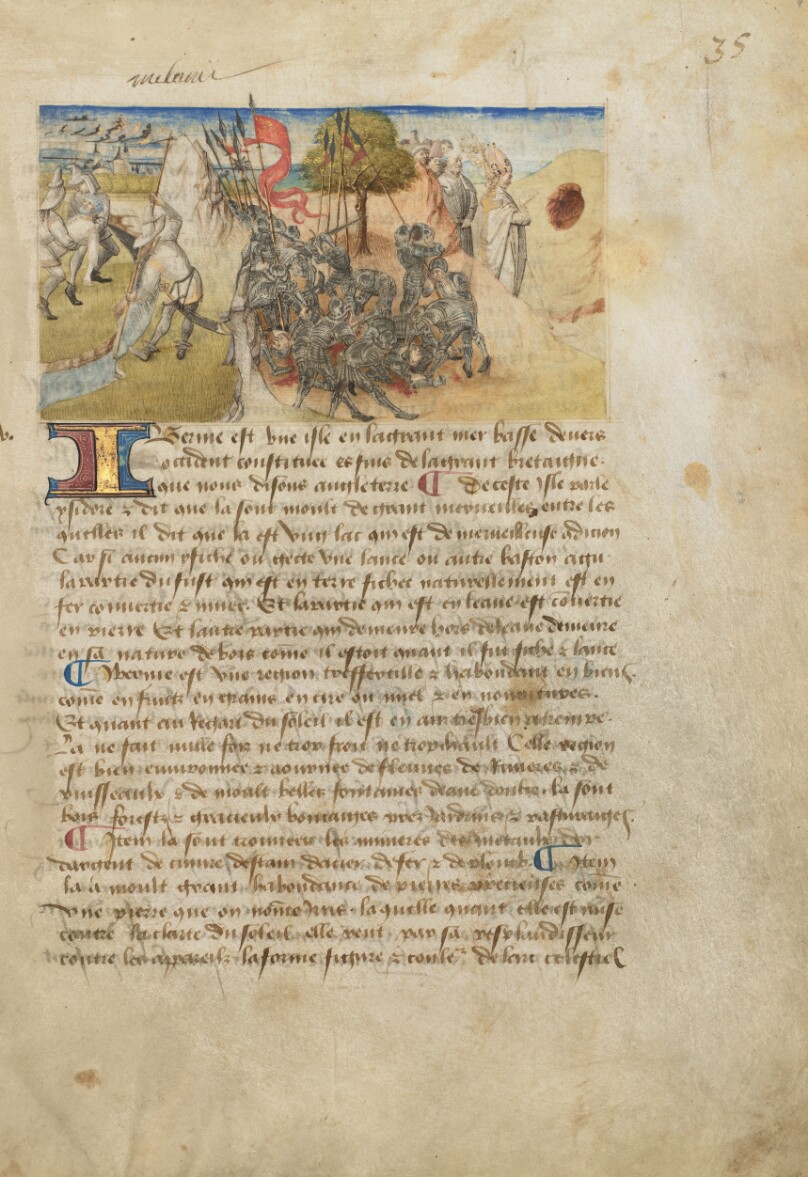 35
IBernie est vne isle en lagrant mer basse deuers
occident constituee es fins de lagrant bretaigne
que nous disons angleterre ¶ De ceste isle parle
ysidore & dit que la sont moult de grant merueilles entre les
quelles il dit que la est vng lac qui est de merueilleuse
Car se aucun y fiche ou gecte vne lance ou autre baston agu
la partie du fust qui est en terre fichee naturellement est en
fer conuertie & muee. Et la partie qui est en leaue est cōuertie
en pierre Et lautre partie qui demeure hors de leaue demeure
en sa nature de bois come il estoit quant il fut fiche & lance
¶ Ybernie est vne region tresfertille & habondant en biens
come en fruits en grains en cire ou miel & en nourritures.
Et quant au regart du soleil il est en air tresbien atrempe.
La ne fait nulle fois ne trop froit ne trop chault Celle region
est bien enuironnee & aournee de fleuues de riuieres & de
ruisseaulx & de moult belles fontaines deaue doulce. la sont
bois forestz & gracieux boucaiges prez Jardins & pasturaiges.
¶ Item la sont trouuees les minieres des metaulx dor
dargent de cuiure destain dacier de fer & de plomb ¶ Item
la a moult grant habondance de pierres precieuses come
vne pierre que on nōme Iris. la quelle quant elle est mise
contre la clarte du soleil elle rent par sa resplendisseur
contre les la forme figure & coule de larc celestiel